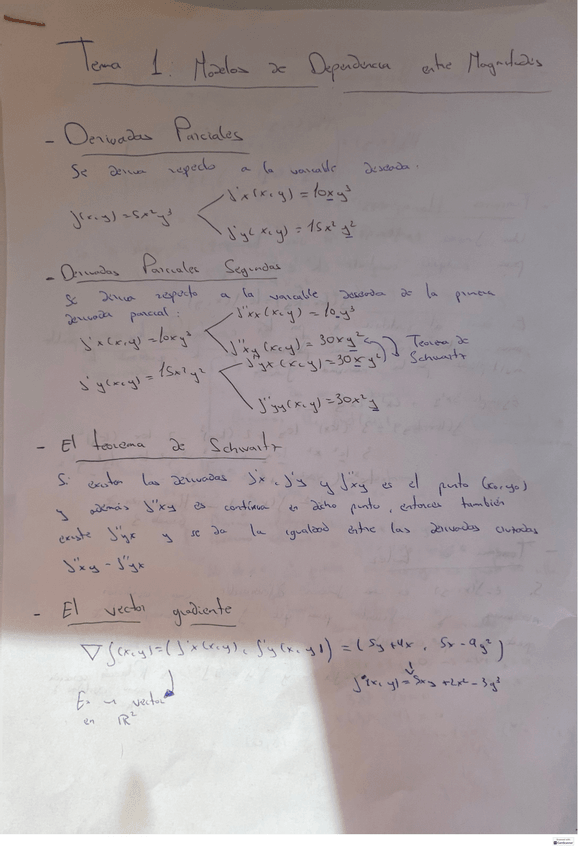 Tema 1: Modelos de Dependencia entre Magnitudes
- Derivadas Parciales
Se deriva respecto a la variable deseada.
f(x,y)=5x²y³
f'x(x,y)=10xy³
f'y(x,y)=15x²y²
- Derivadas Parciales Segundas
Se deriva respecto a la variable deseada de la primera
derivada parcial:
f'x(x,y)=10xy³
f''xx(x,y)=10y³
f''xy(x,y)=30xy²
Teorema de
Schwartz
f'y(x,y)=15x²y²
f''yx(x,y)=30xy²
f''yy(x,y)=30x²y
- El teorema de Schwartz
Si existen las derivadas f'x, f'y y f''xy es el punto (x₀,y₀)
y además f''xy es continua en dicho punto, entonces también
existe f''yx y se da la igualdad entre las derivadas cruzadas
f''xy = f''yx
- El vector gradiente
∇f(x,y)=(f'x(x,y), f'y(x,y))=(5y+4x, 5x-9y²)
Es un vector
en ℝ²
f(x,y)=5xy+2x²-3y³